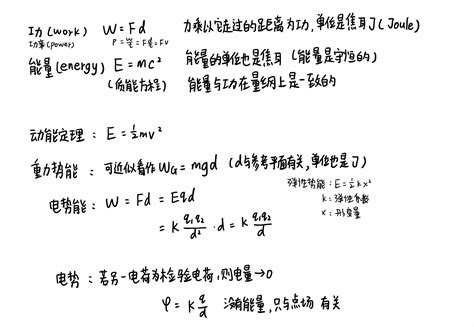 功(work) W=Fd 力乘以它在过的距离为功,单位是焦耳J(Joule)
功率(power) P=W/t=F d/t=Fv
能量(energy) E=mc² 能量的单位也是焦耳(能量是守恒的)
(质能方程) 能量与功在量纲上是一致的
动能定理:E=½mv²
重力势能:可近似看作W_G=mgd(d与参考平面有关,单位也是J)
弹性势能:E=½kx²
k:弹性系数
x:形变量
电势能:W=Fd=Eqd
=k q₁q₂/d²·d=k q₁q₂/d
电势:若另一电荷为检验电荷,则电量→0
φ=k q/d 没有能量,只与点场有关